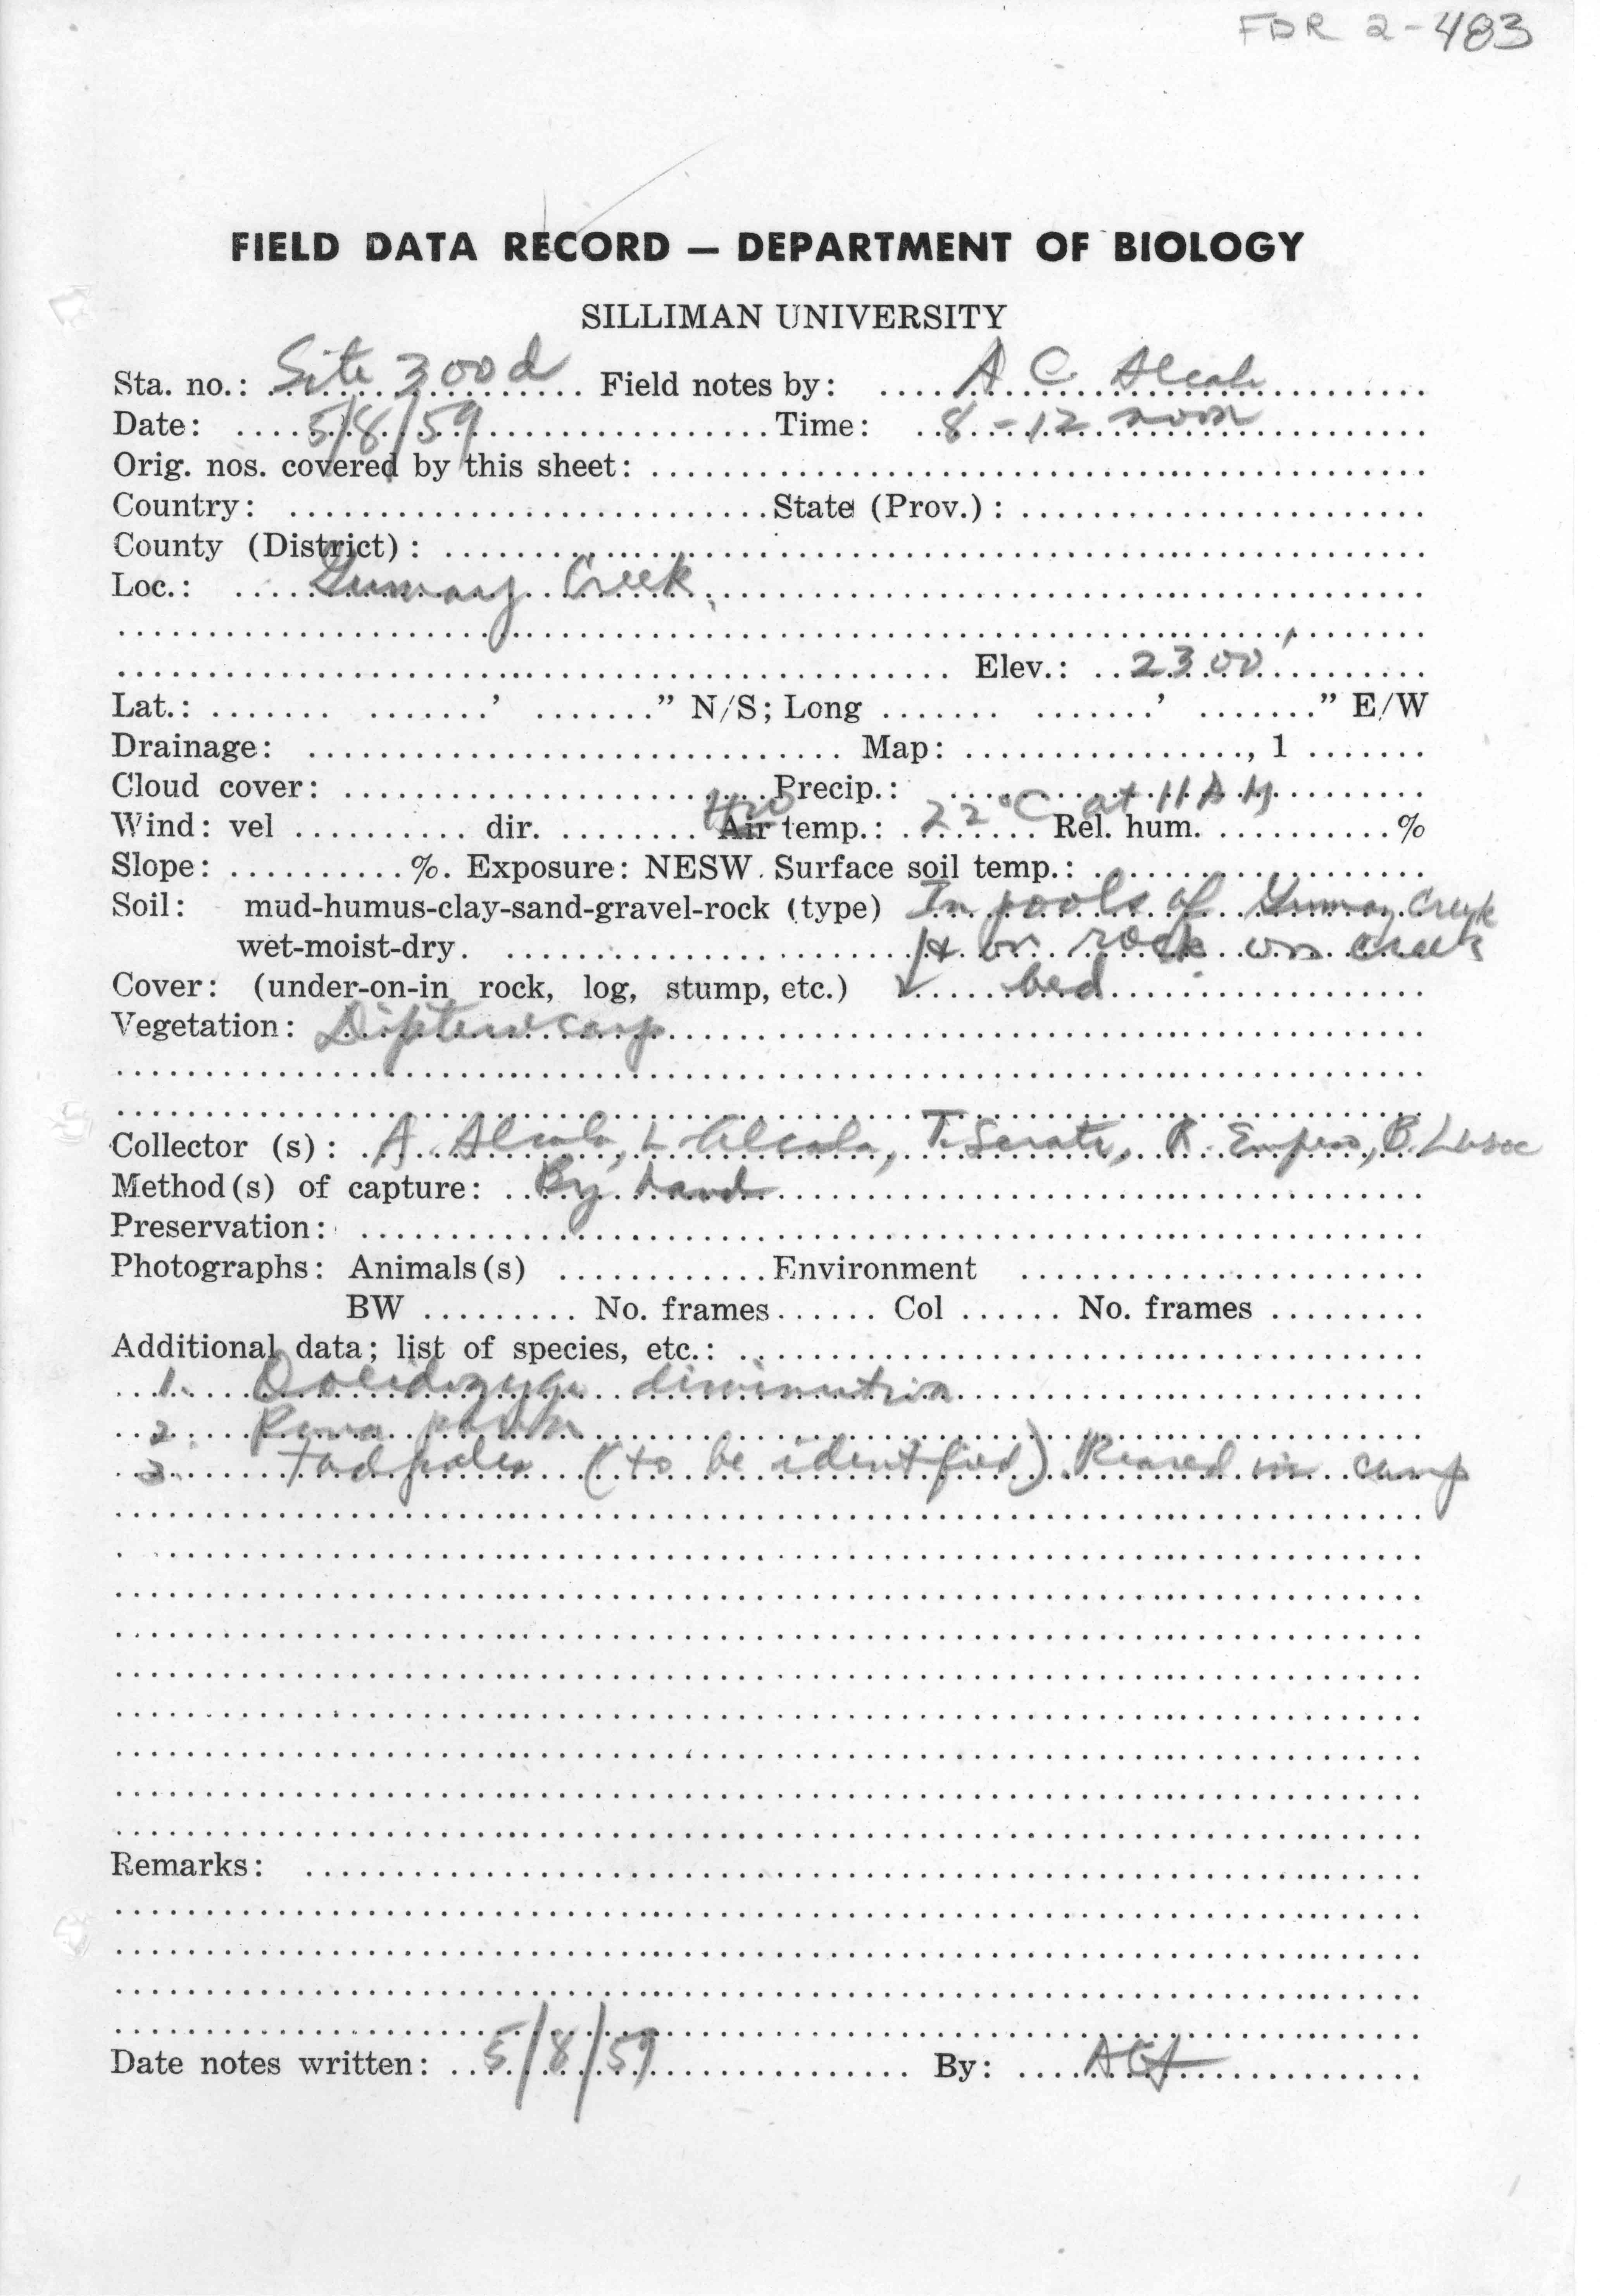 FDR 2-483
FIELD DATA RECORD — DEPARTMENT OF BIOLOGY
SILLIMAN UNIVERSITY
Sta. no.: Site 300d Field notes by: A C Alcala
Date: 5/8/59 Time: 8-12 noon
Orig. nos. covered by this sheet:
Country: State (Prov.):
County (District):
Loc.: Gumay Creek,
Elev.: 2300'
Lat.: ' " N/S; Long ' " E/W
Drainage: Map: , 1
Cloud cover: Precip.:
Wind: vel dir. H2O Air temp.: 22°C at 11 AM Rel. hum. %
Slope: %. Exposure: NESW. Surface soil temp.:
Soil: mud-humus-clay-sand-gravel-rock (type) In pools of Gumay Creek
wet-moist-dry. & on rock on creek
Cover: (under-on-in rock, log, stump, etc.) bed
Vegetation: Dipterocarp
Collector (s): A. Alcala, L Alcala, T. Serate, R. Empeso, B. Lusoc
Method(s) of capture: By hand
Preservation:
Photographs: Animals(s) Environment
BW No. frames Col No. frames
Additional data; list of species, etc.:
1. Ooeidozyga diminutiva
2. Rana parva
3. Tadpoles (to be identified) Reared in camp
Remarks:
Date notes written: 5/8/59 By: ACA